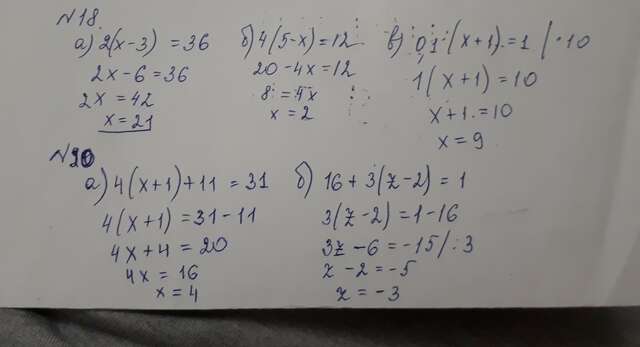 №18
а) 2(x-3) = 36
2x-6 = 36
2x = 42
x = 21
б) 4(5-x) = 12
20-4x = 12
8 = 4x
x = 2
в) 0,1·(x+1) = 1 / ·10
1(x+1) = 10
x+1 = 10
x = 9
№20
а) 4(x+1)+11 = 31
4(x+1) = 31-11
4x+4 = 20
4x = 16
x = 4
б) 16+3(z-2) = 1
3(z-2) = 1-16
3z-6 = -15/:3
z-2 = -5
z = -3